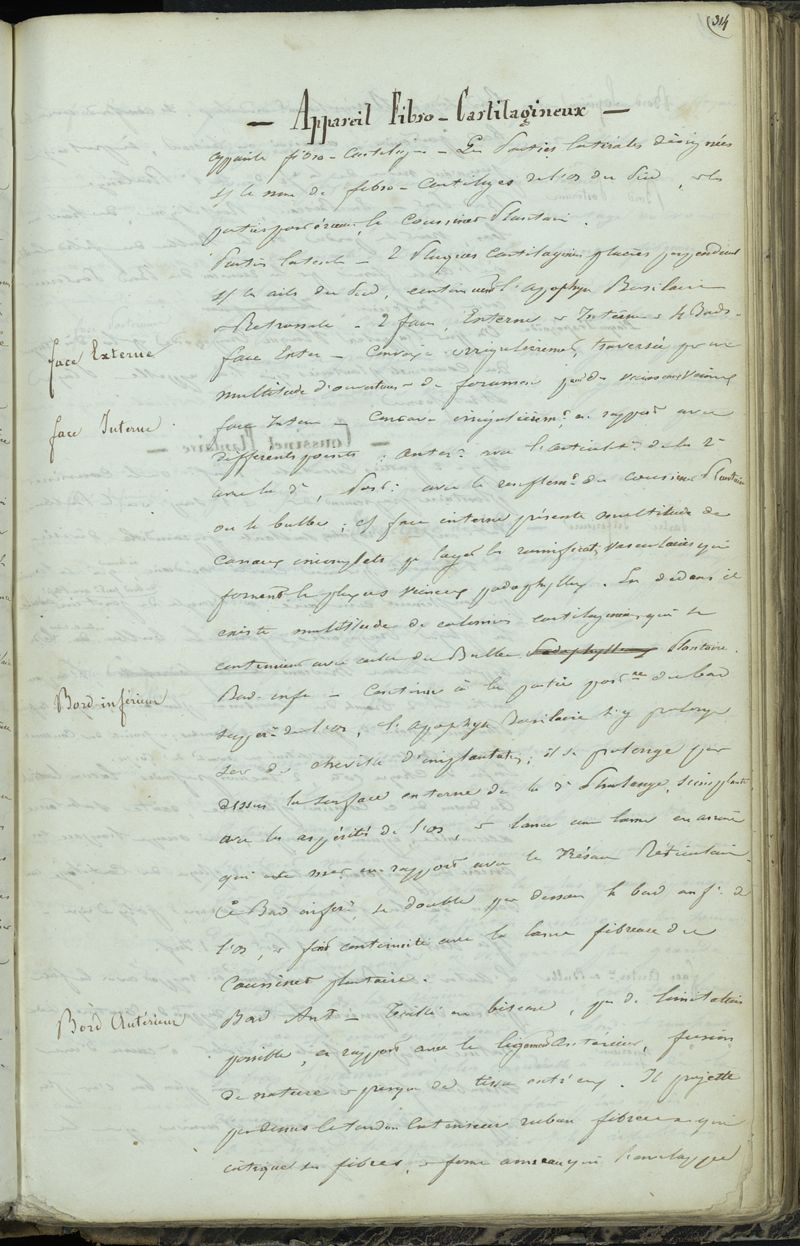 314
— Appareil Fibro-Cartilagineux —
fibro-Cartilag — Les Parties latérales désignées
s/ le nom de fibro-Cartilages de l'os du Pied, & les
le Coussinet Plantaire.
Parties latérales — 2 Plaques Cartilagineuses placées
s/ les ails du Pied, l'apophyse Basilaire
& Retrossale — 2 faces, Externe & Interne & 4 Bords.
face Externe
face Exter — Convexe irrégulièrement, traversée par une
multitude d'ouvertures de
face Interne
face Intern — Concave irrégulièremt, en rapport avec
différents points ; Antre avec l'articulatn de la 2e
avec la 3e, Post. avec le renflemt du coussinet Plantaire
ou le bulbe ; s/ face interne présente multitude de
canaux incomplets les ramificat vasculaires qui
forment le plexus veineux podophylleux. En dedans il
existe multitude de colonnes cartilagineuses qui se
continuent avec celles du Bulbe Plantaire.
Bord inférieur
Bord infe — Continu à la partie postre du bord
super de l'os, l'apophyse Basilaire s'y prolonge
de cheville d'implantation ; il se prolonge par
dessus la surface externe de la 3e Phalange, s'implante
avec les aspérités de l'os, & lance une lame en arrière
qui se met en rapport avec le Réseau Réticulaire.
Ce Bord infer, se double par dessous le bord inf. de
l'os, & fait continuité avec la lame fibreuse du
Coussinet plantaire.
Bord Antérieur
Bord Ant — Taillé en biseau, pas de limitation
possible, en rapport avec le ligament Antérieur, fusion
de nature & presque de tissu entr'eux. Il projette
par dessus le tendon Extenseur ruban fibreux qui
ses fibres, & forme anneau qui l'enveloppe